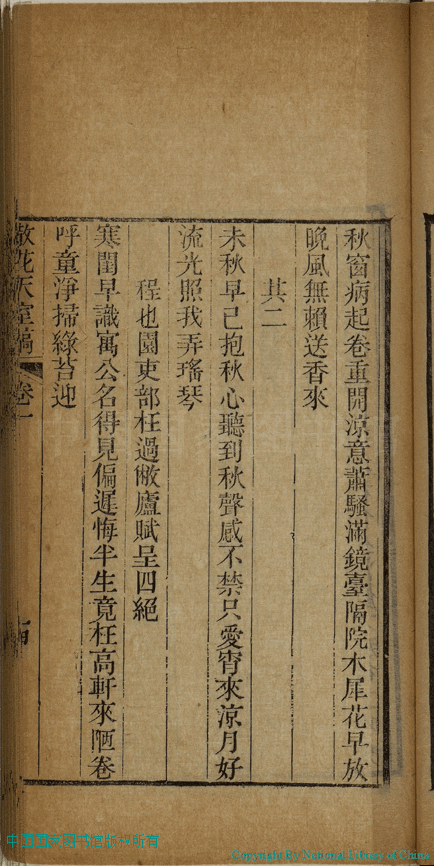 秋窗病起卷重開涼意蕭騷滿鏡臺隔院木犀花早放
晚風無賴送香來
其二
未秋早已抱秋心聽到秋聲感不禁只愛宵來涼月好
流光照我弄瑤琴
程也園吏部枉過敝廬賦呈四絕
寒閨早識寓公名得見偏遲悔半生竟枉高軒來陋巷
呼童淨掃綠苔迎
散花天室稿 卷一
Copyright By National Library of China